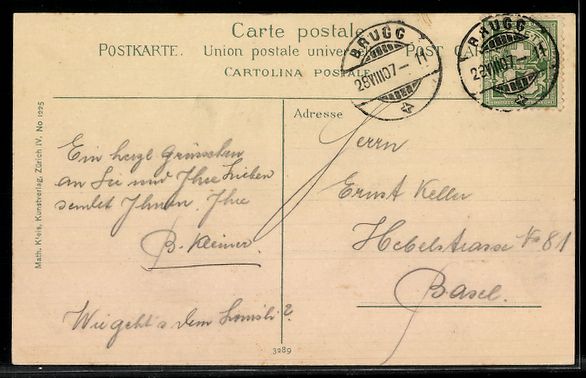 Carte postale
POSTKARTE. Union postale universelle POST CARD
CARTOLINA POSTALE
BRUGG
28VIII07-11
BRUGG
28VIII07-11
Adresse
Math. Kleis, Kunstverlag, Zürich IV. No 1225
Ein herzl Grüsschen
an Sie und Ihre Lieben
sendet Ihnen, Ihre
B. Kleiner.
Wie geht's dem
Herrn
Ernst Keller
Hebelstrasse No 81
Basel.
3289